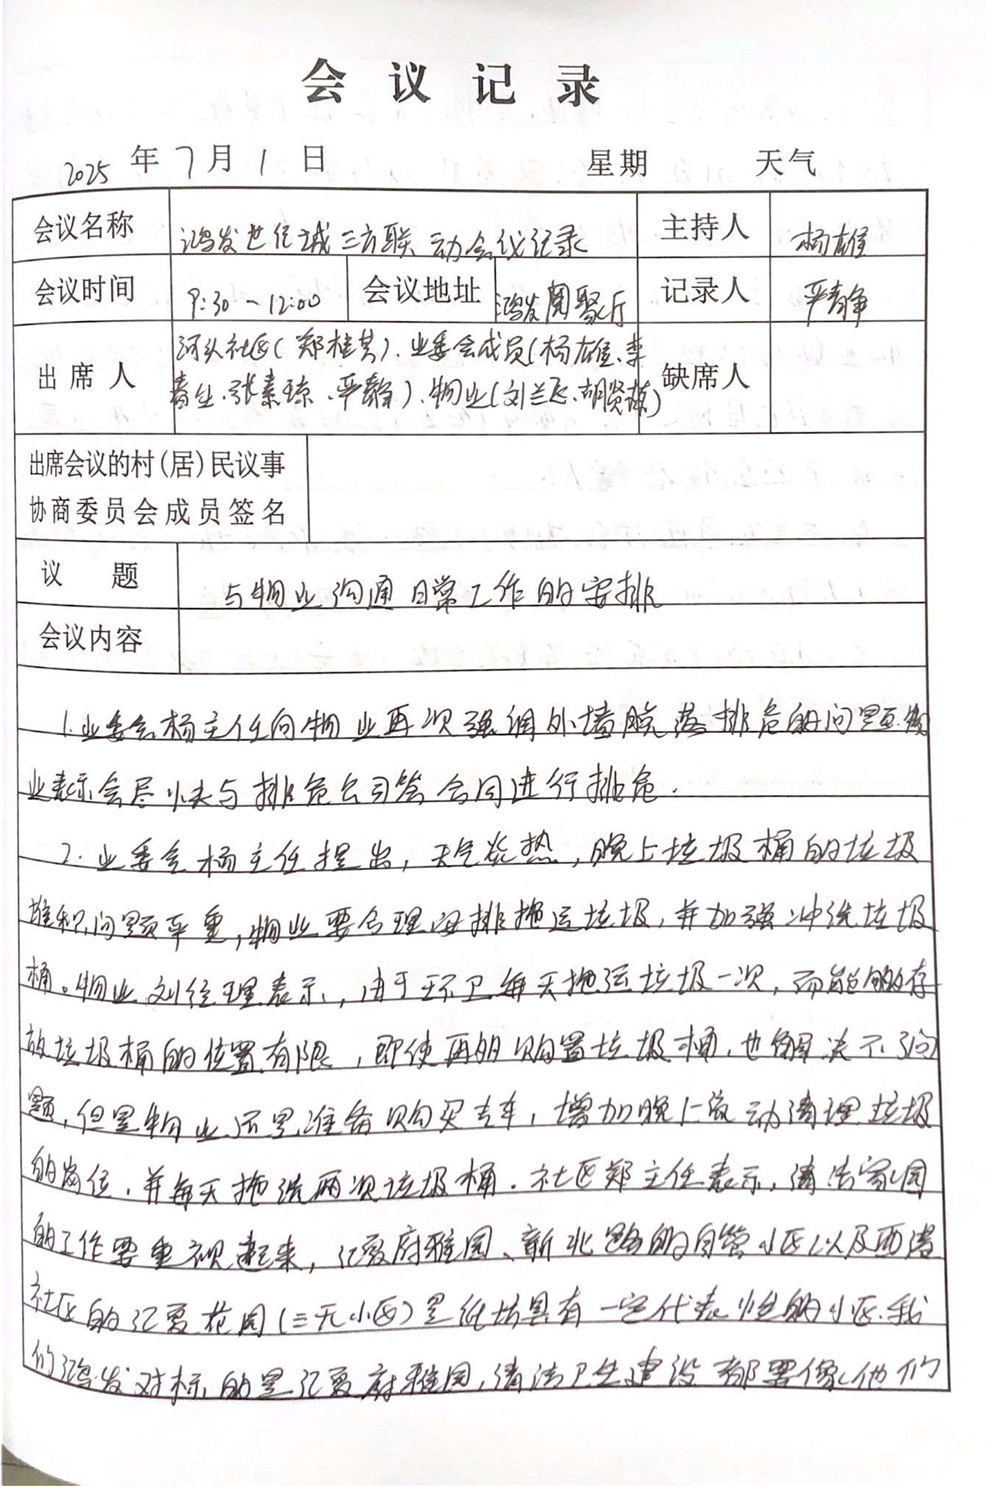 会议记录
2025年7月1日 星期 天气
会议名称 鸿发世纪城三方联动会议记录 主持人 杨雄
会议时间 9:30~12:00 会议地址 鸿发园聚厅 记录人 严静
出席人 河头社区(郑桂芳).业委会成员(杨雄.李 缺席人
春生.张素琼.严静).物业(刘兰飞.胡贤)
出席会议的村(居)民议事
协商委员会成员签名
议题 与物业沟通日常工作的安排
会议内容
1.业委会杨主任向物业再次强调外墙脱落排危的问题.物
业表示会尽快与排危公司签合同进行排危.
2.业委会杨主任提出,天气炎热,晚上垃圾桶的垃圾
堆积问题严重,物业要合理安排拖运垃圾,并加强冲洗垃圾
桶。物业刘经理表示,由于环卫每天拖运垃圾一次,而能够存
放垃圾桶的位置有限,即使再多购置垃圾桶,也解决不了问
题,但是物业还是准备购买专车,增加晚上流动清理垃圾
的岗位,并每天拖洗两次垃圾桶.社区郑主任表示,清洁家园
的工作要重视起来,亿爱府雅园、新北路的自管小区以及西
社区的亿爱花园(三无小区)是低具有一定代表性的小区.我
们鸿发对标的是亿爱府雅园,清洁卫生建设都要像他们